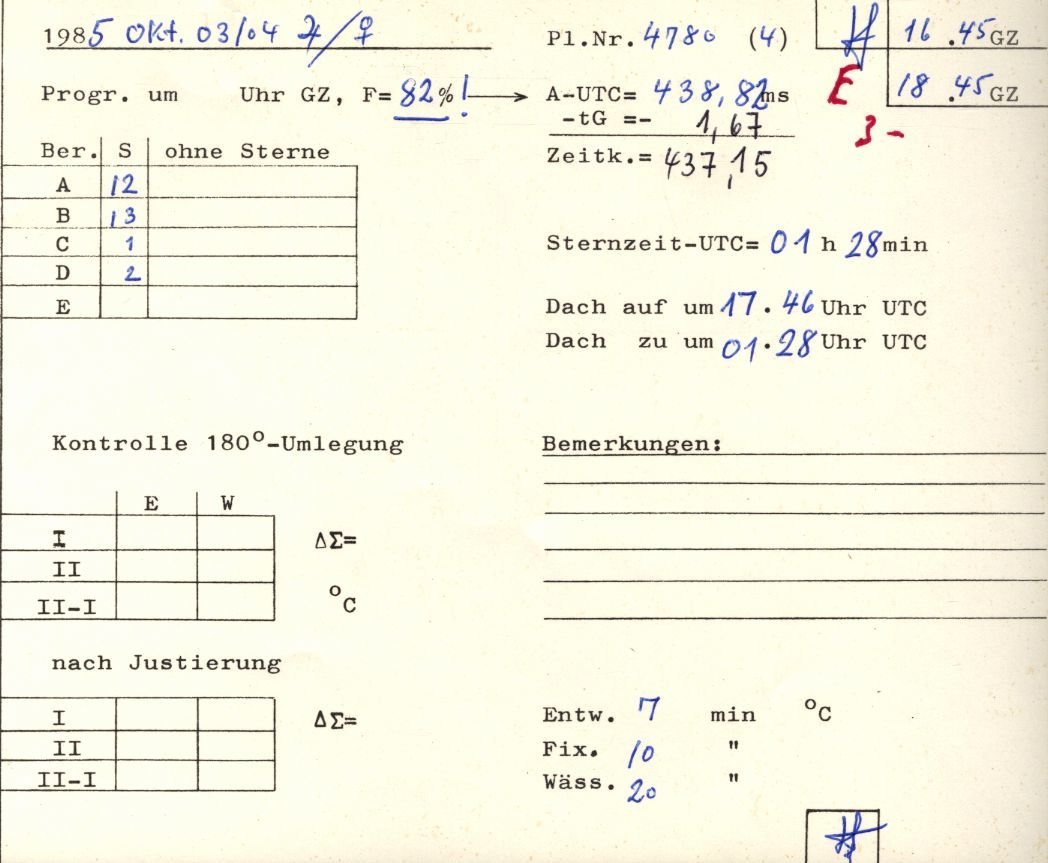 1985 Okt. 03/04 ♃/♀
Pl.Nr. 4780 (4)
16.45 GZ
Progr. um Uhr GZ, F= 82%! → A-UTC= 438,82ms
E
18.45 GZ
-tG =- 1,67
3-
Zeitk.= 437,15
Ber. S ohne Sterne
A 12
B 13
C 1
D 2
E
Sternzeit-UTC= 01 h 28min
Dach auf um 17.46 Uhr UTC
Dach zu um 01.28 Uhr UTC
Kontrolle 180°-Umlegung
Bemerkungen:
E W
I ΔΣ=
II
II-I °C
nach Justierung
I ΔΣ=
II
II-I
Entw. 7 min °C
Fix. 10 "
Wäss. 20 "